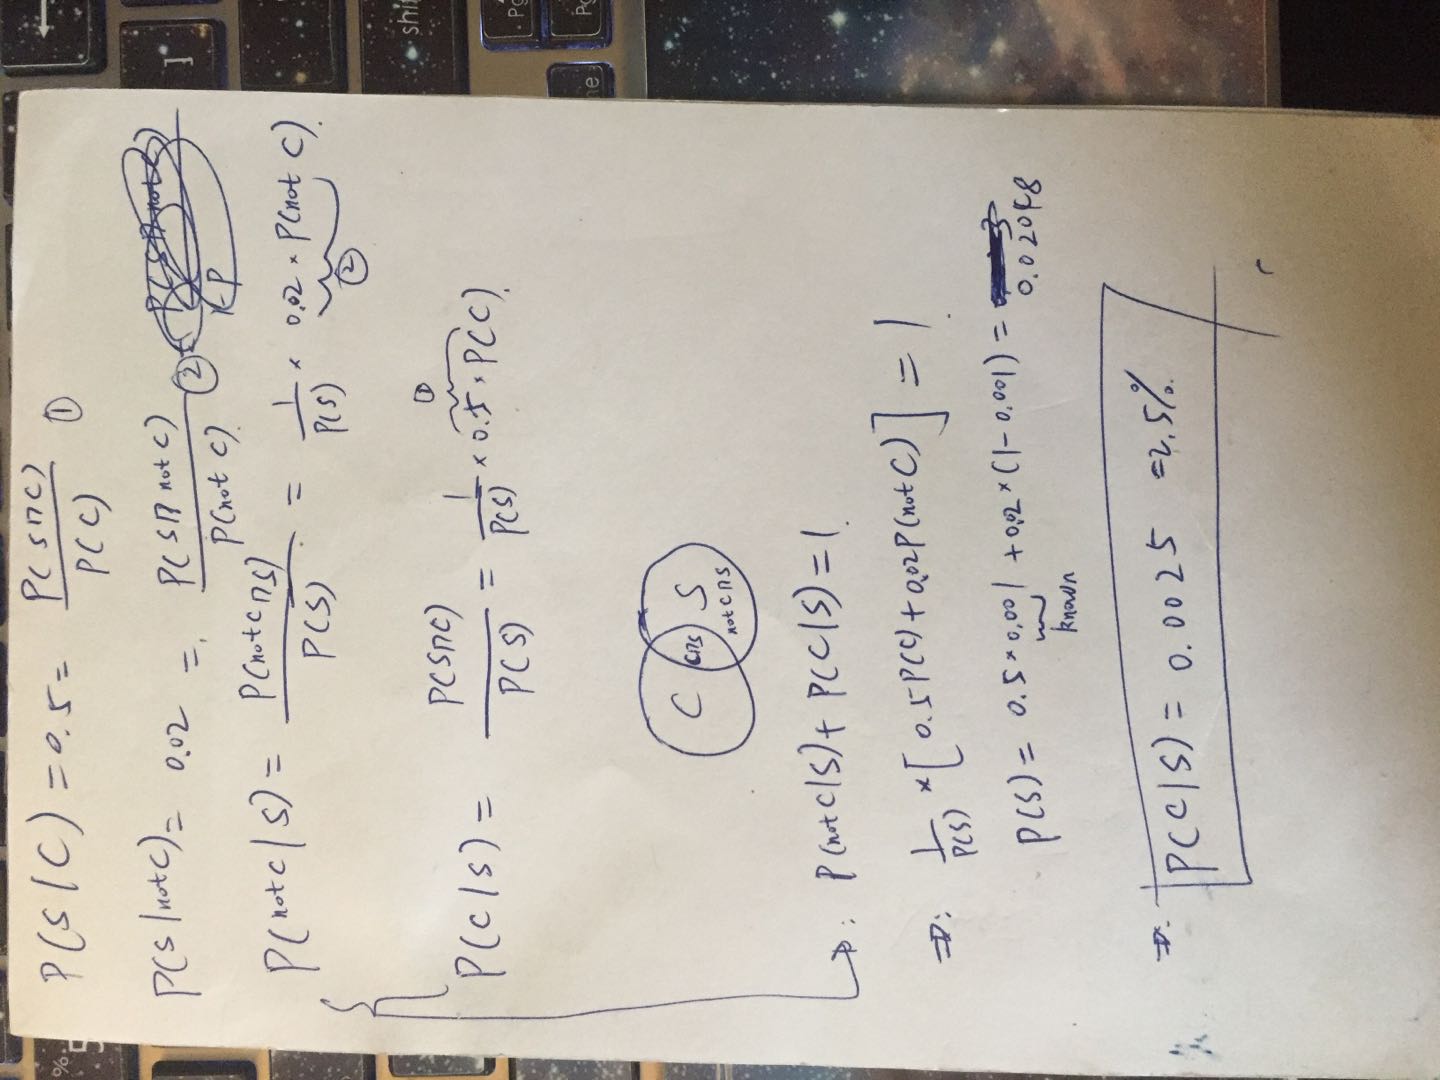 P(S|C) = 0.5 = P(S∩C) / P(C) ①
P(S|not C) = 0.02 = P(S∩ not C) / P(not C) ②
P(not C|S) = P(not C∩S) / P(S) = 1 / P(S) × 0.02 × P(not C)
②
①
P(C|S) = P(S∩C) / P(S) = 1 / P(S) × 0.5 × P(C)
C C∩S S
not C∩S
P(not C|S) + P(C|S) = 1
⇒: 1 / P(S) × [0.5P(C) + 0.02P(not C)] = 1
P(S) = 0.5 × 0.001 + 0.02 × (1 - 0.001) = 0.02048
known
⇒: P(C|S) = 0.0025 = 2.5%
%
5
]
shi
Pg
Pg